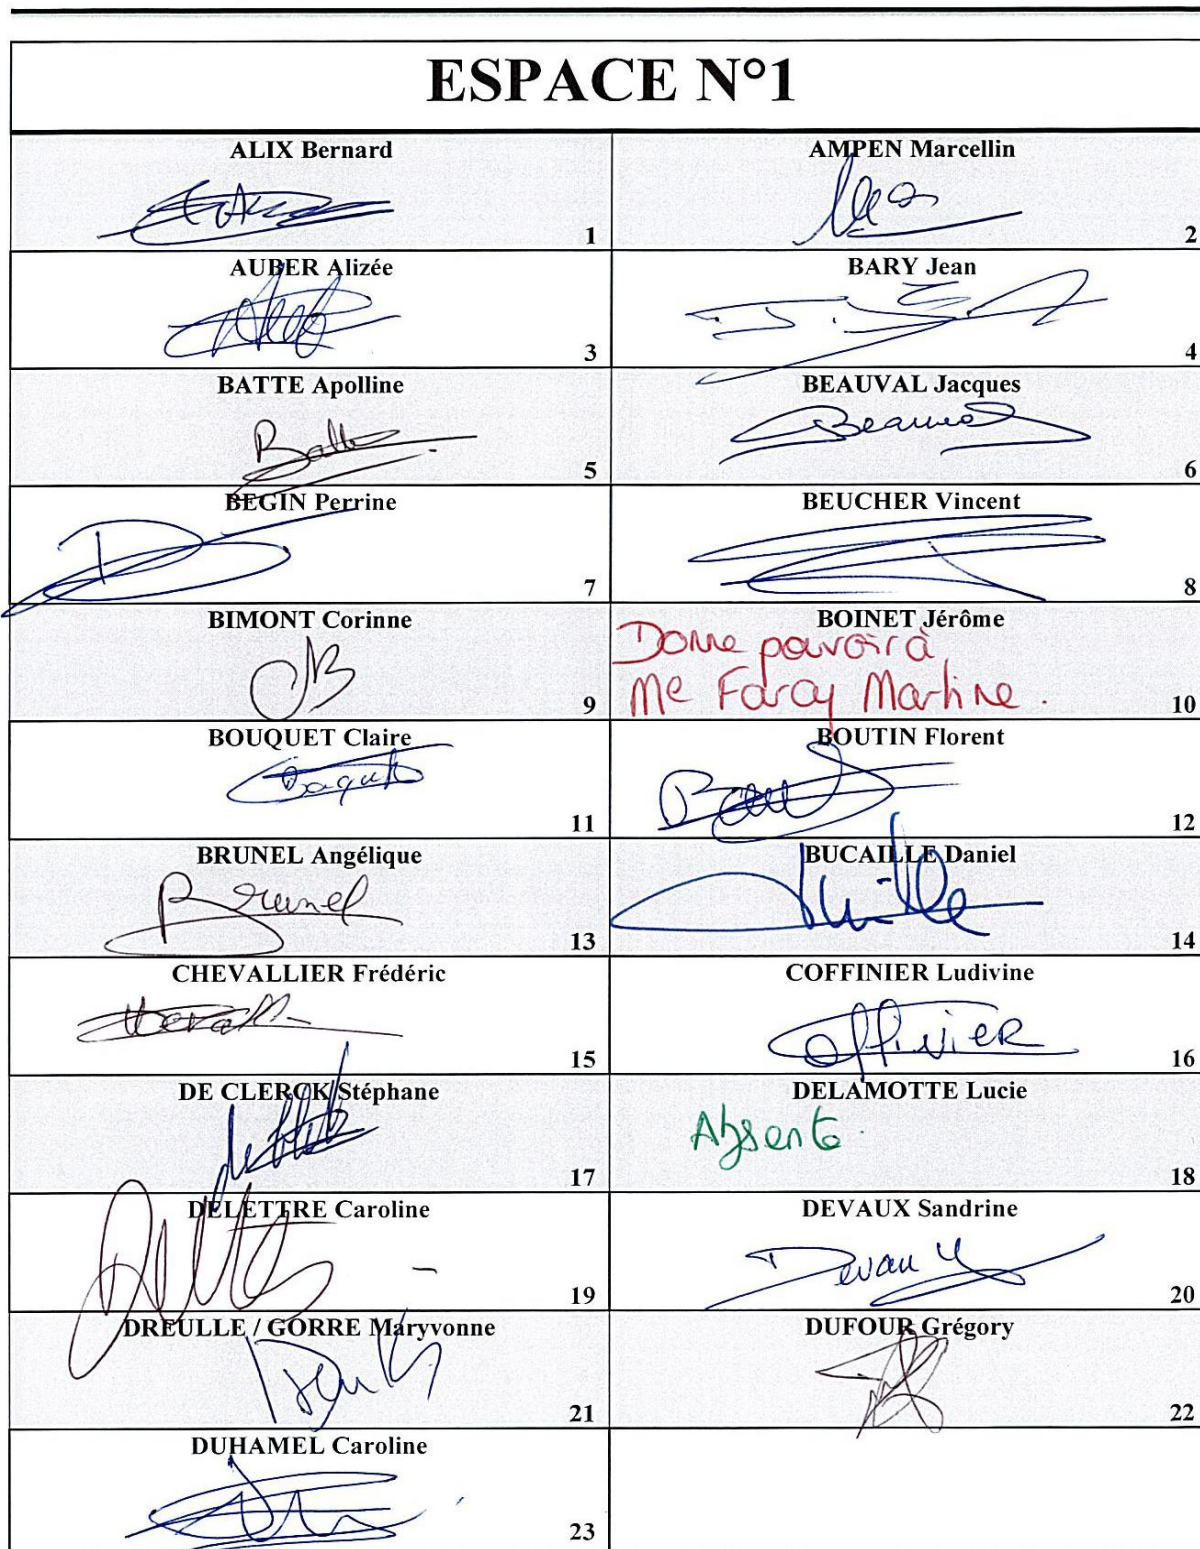 ESPACE N°1
ALIX Bernard
1
AMPEN Marcellin
2
AUBER Alizée
3
BARY Jean
4
BATTE Apolline
Batte
5
BEAUVAL Jacques
Beauval
6
BEGIN Perrine
7
BEUCHER Vincent
8
BIMONT Corinne
CB
9
BOINET Jérôme
Donne pouvoir à
Me Farcy Martine.
10
BOUQUET Claire
11
BOUTIN Florent
12
BRUNEL Angélique
Brunel
13
BUCAILLE Daniel
14
CHEVALLIER Frédéric
15
COFFINIER Ludivine
Coffinier
16
DE CLERCK Stéphane
17
DELAMOTTE Lucie
Absente.
18
DELETTRE Caroline
19
DEVAUX Sandrine
Devaux
20
DREULLE / GORRE Maryvonne
21
DUFOUR Grégory
22
DUHAMEL Caroline
23